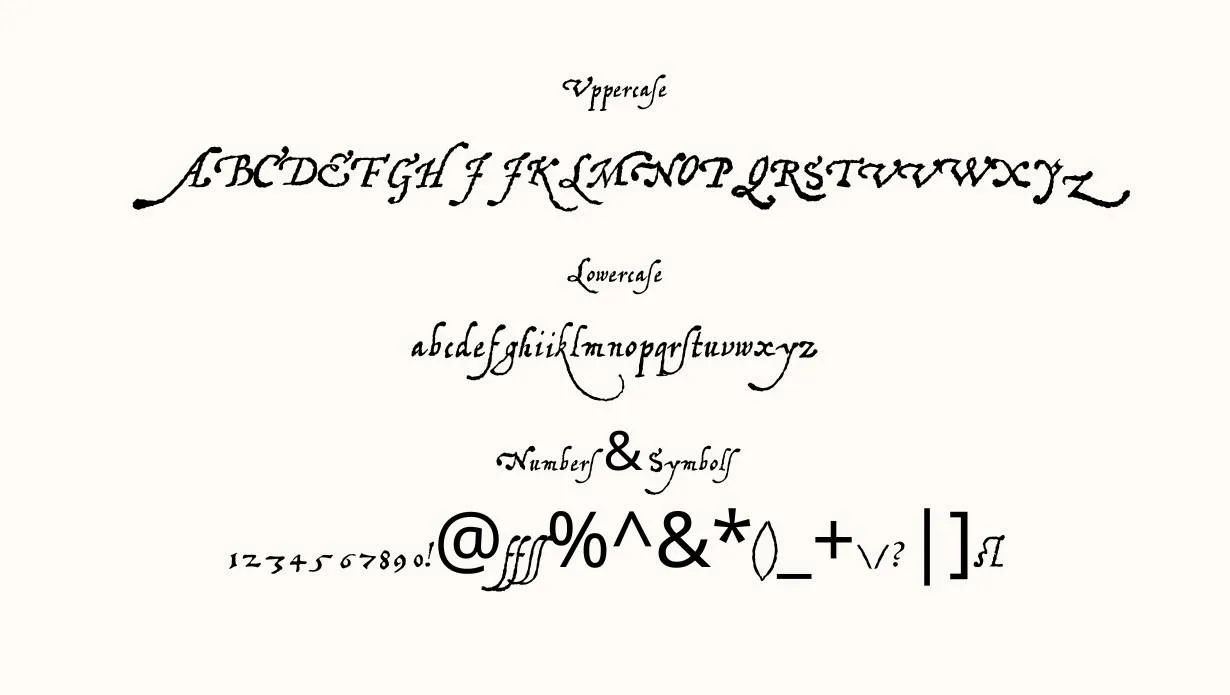 Vppercaſe
ABCDEFGHIJKLMNOPQRSTVVWXYZ
Lowercaſe
abcdefghiiklmnopqrſtuvwxyz
Numberſ & Symbolſ
1234567890!@ffſſ%^&*()_+\/?|]